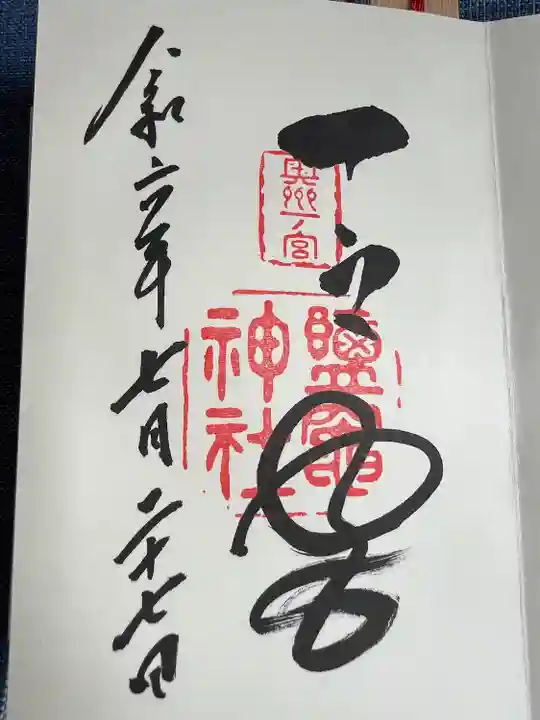 奥州一ノ宮
一之宮
鹽竈
神社
令和六年七月二十七日